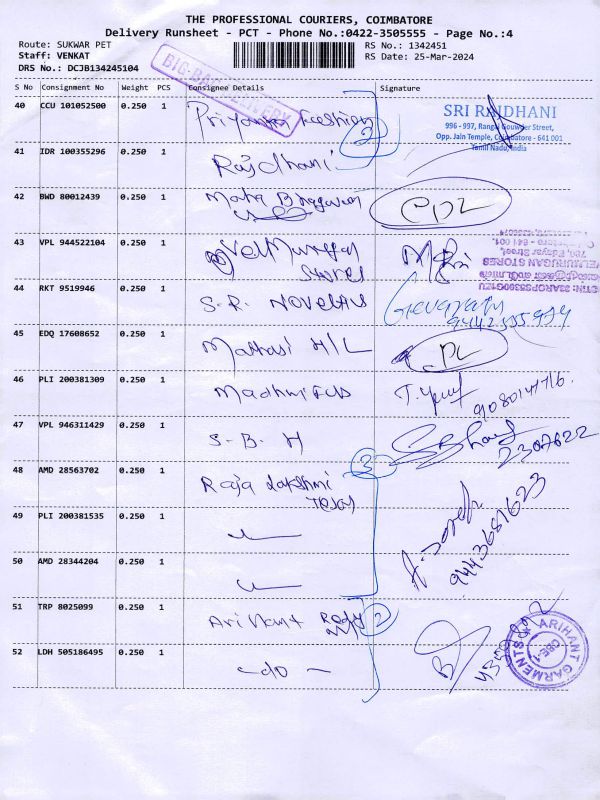 THE PROFESSIONAL COURIERS, COIMBATORE
Delivery Runsheet - PCT - Phone No.:0422-3505555 - Page No.:4
Route: SUKWAR PET
Staff: VENKAT
DRS No.: DCJB134245104
RS No.: 1342451
RS Date: 25-Mar-2024
S No Consignment No Weight PCS Consignee Details Signature
40 CCU 101052500 0.250 1 Priyanka Fashion 2
SRI RAJDHANI
996 - 997, Rangai Gouwder Street,
Opp. Jain Temple, Coimbatore - 641 001
Tamil Nadu, India
41 IDR 100355296 0.250 1 Rajdhani
42 BWD 80012439 0.250 1 Maha Bhagavan
43 VPL 944522104 0.250 1 Vel Murugan Stores
VELMURUGAN STORES
44 RKT 9519946 0.250 1 S.R. Novelties
45 EDQ 17608652 0.250 1 H/L
46 PLI 200381309 0.250 1 9080141716.
47 VPL 946311429 0.250 1 S.B.H 2307622
3
48 AMD 28563702 0.250 1 Raja Lakshmi Tex
9443681623
49 PLI 200381535 0.250 1
50 AMD 28344204 0.250 1
51 TRP 8025099 0.250 1 Arihant 2
52 LDH 505186495 0.250 1 -do-
ARIHANT GARMENTS
CBE-1